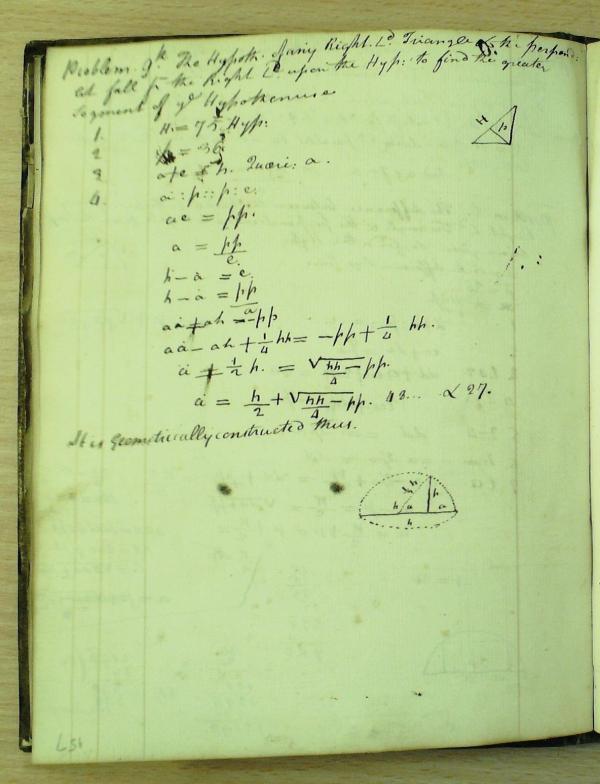 Problem. 9th. The Hypoth. of any Right. Ld. Triangle & the perpend:
let fall fr. the Right Ld upon the Hyp: to find the greater
Segment of ye Hypothenuse
1. H = 75 Hyp:
2 = 36
3 a+e = h. Quæri: a.
4. a : p :: p : e.
ae = pp.
a = pp/e.
h - a = e.
h - a = pp/a
aa - ah = -pp
aa - ah + 1/4 hh = -pp + 1/4 hh.
a - 1/2 h. = √hh/4 - pp.
a = h/2 + √hh/4 - pp. 48... & 27.
It is geometrically constructed thus.
H
p
h
h
a
a
h
L51